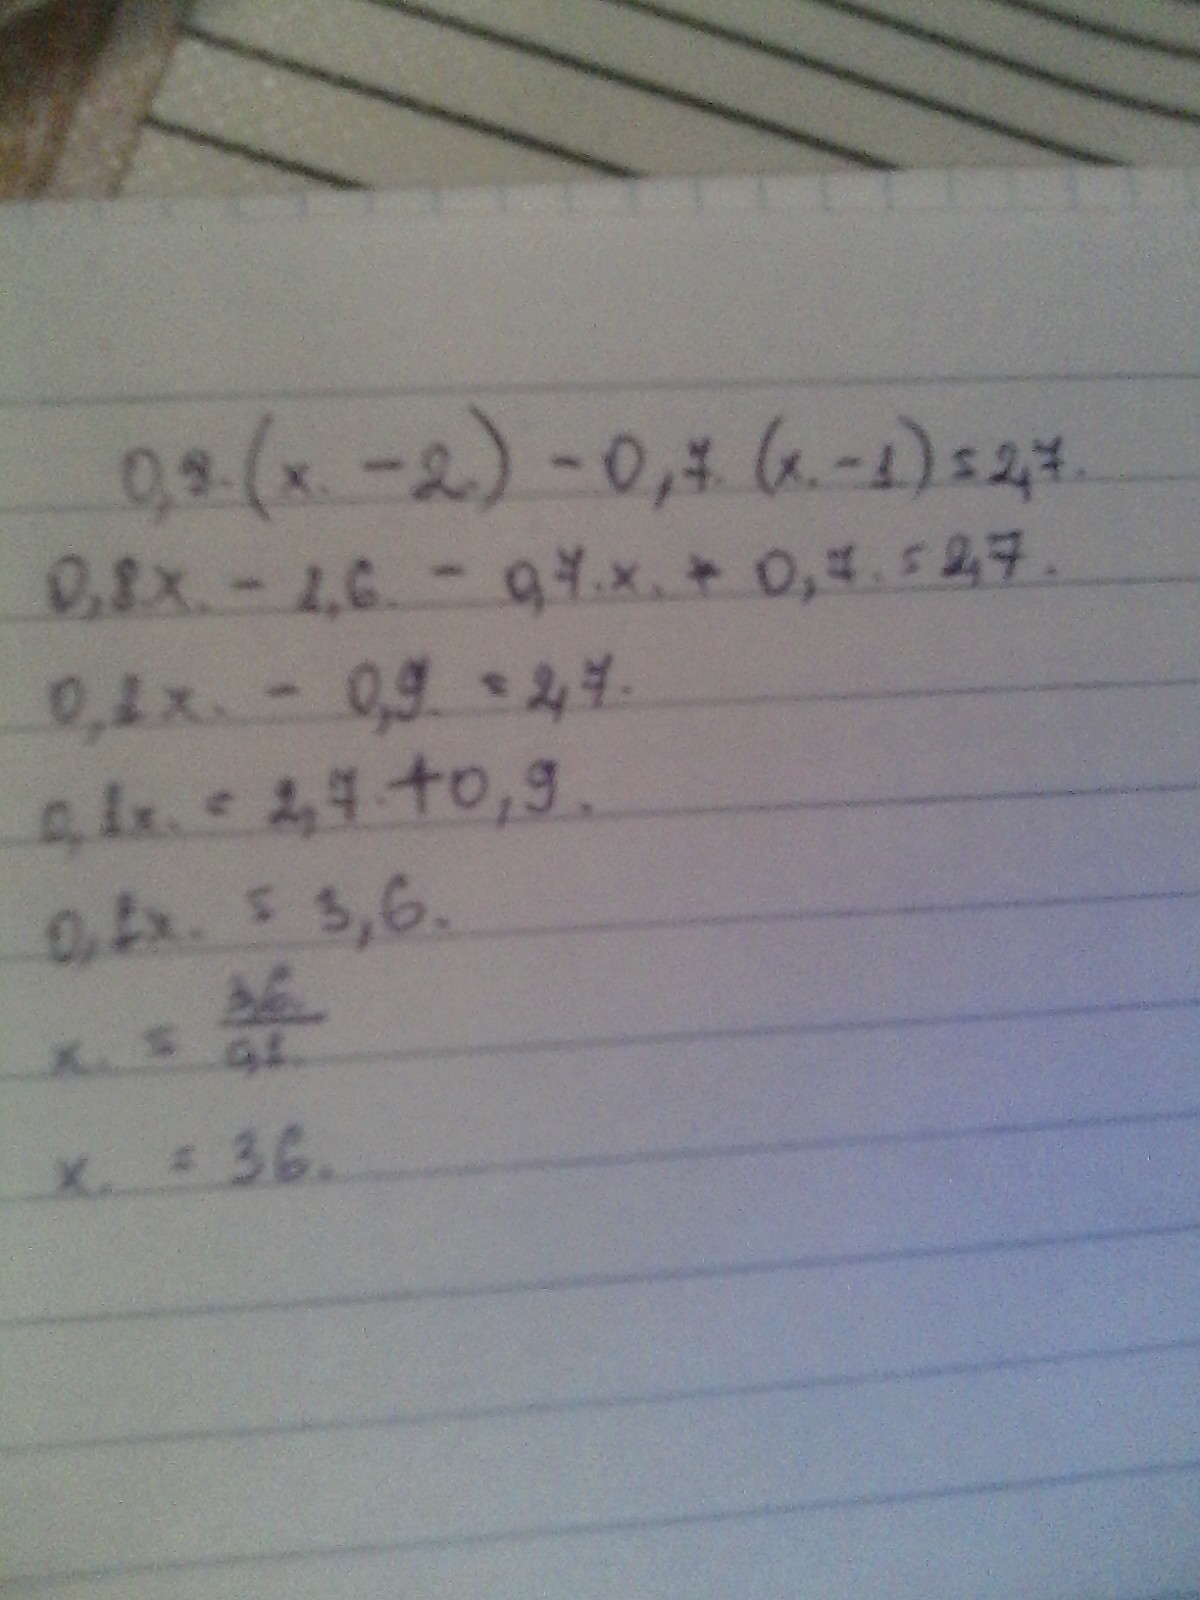 0,8.(x. -2.) - 0,7. (x.-1) = 2,7.
0,8x. - 1,6. - 0,7.x. + 0,7. = 2,7.
0,1x. - 0,9 = 2,7.
0,1x. = 2,7.+0,9.
0,1x. = 3,6.
x. = 3,6./0,1.
x. = 36.